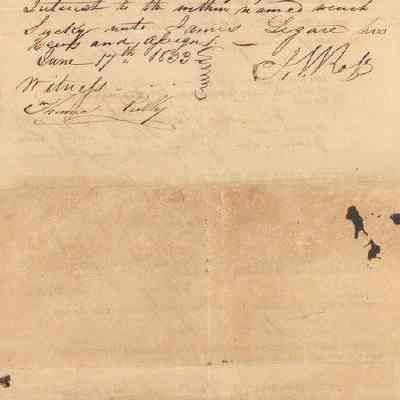 Interest to the within named wench
Lucky unto James Legare his
Heirs and assigns —
June 17th 1833
J. J. Ross
Witness
Thomas